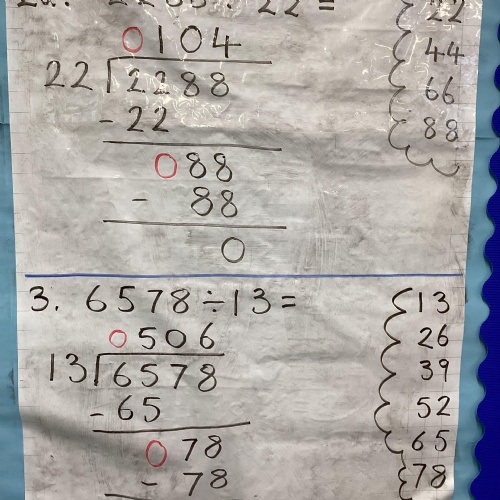 ÷ 22 =
22
0104
44
22 2288
66
- 22
88
088
- 88
0
3. 6578 ÷ 13 =
13
0506
26
13 6578
39
- 65
52
078
65
- 78
78